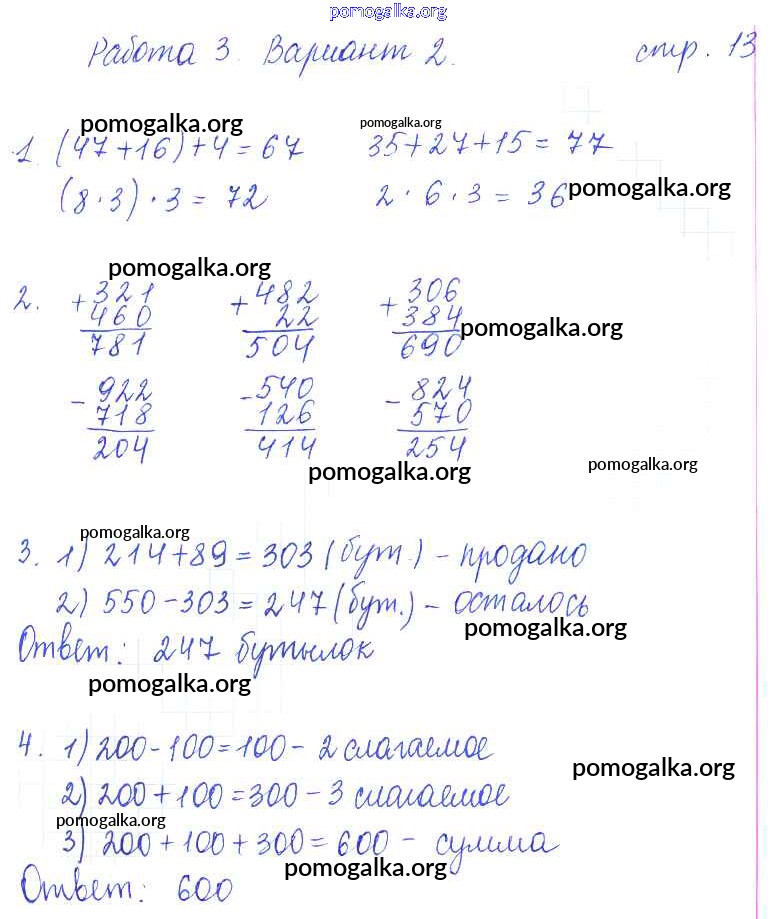 pomogalka.org
Работа 3. Вариант 2. стр. 13
pomogalka.org pomogalka.org
1. (47+16)+4=67 35+27+15=77
(8·3)·3=72 2·6·3=36 pomogalka.org
pomogalka.org
2. +321 +482 +306
460 22 384 pomogalka.org
781 504 690
-922 -540 -824
718 126 570
204 414 254
pomogalka.org pomogalka.org
pomogalka.org
3. 1) 214+89=303 (бут.) - продано
2) 550-303=247 (бут.) - осталось
pomogalka.org
Ответ: 247 бутылок
pomogalka.org
4. 1) 200-100=100 - 2 слагаемое
pomogalka.org
2) 200+100=300 - 3 слагаемое
pomogalka.org
3) 200+100+300=600 - сумма
pomogalka.org
Ответ: 600